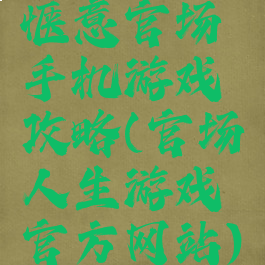 惬意官场
手机游戏
攻略(官场
人生游戏
官方网站)